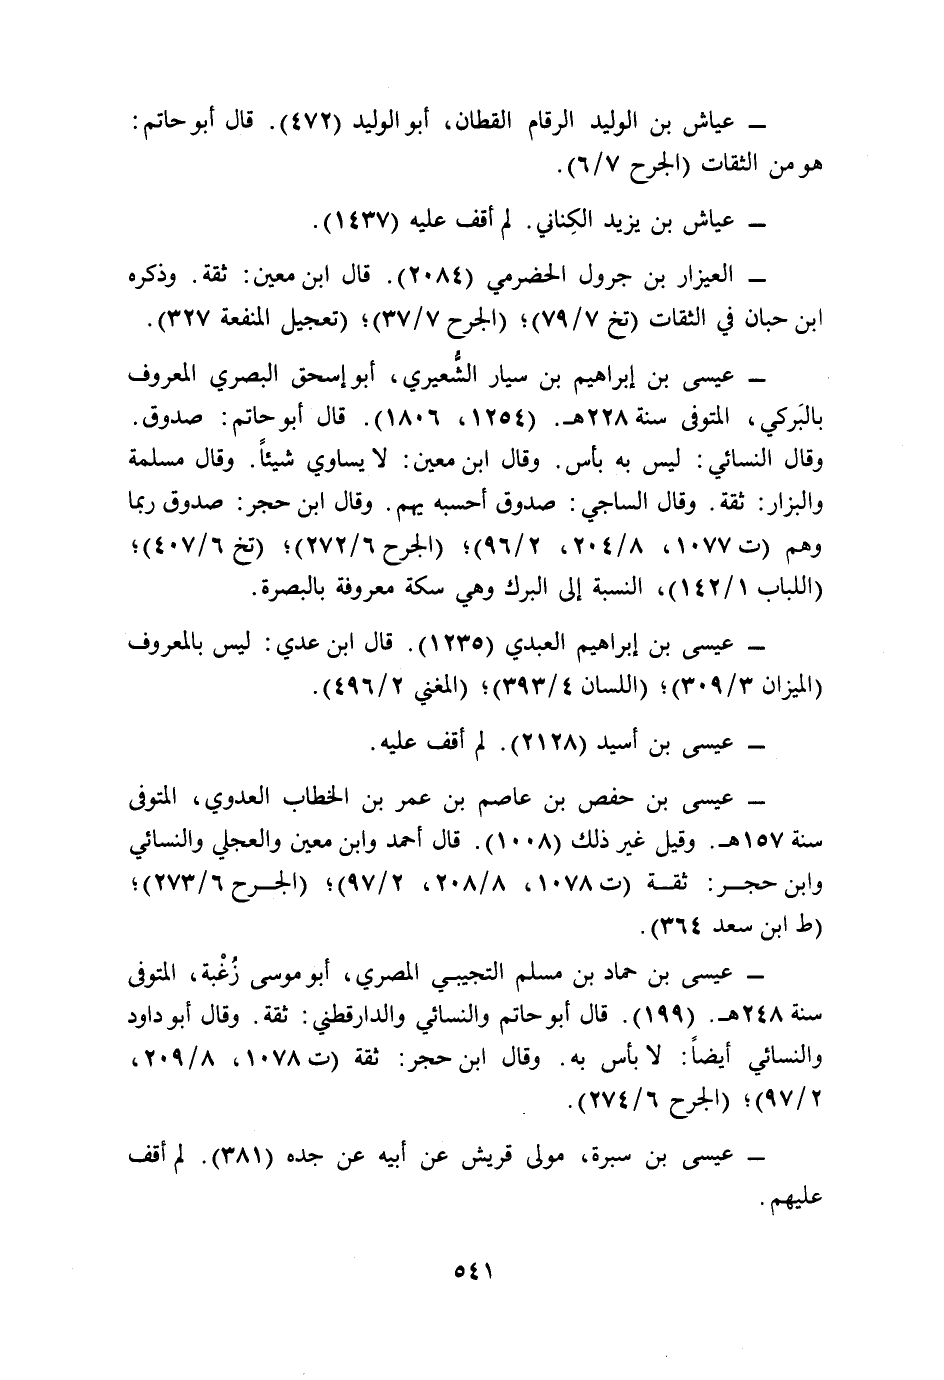 ـ عياش بن الوليد الرقام القطان، أبو الوليد (٤٧٢). قال أبو حاتم:
هو من الثقات (الجرح ٦/٧).
ـ عياش بن يزيد الكِناني. لم أقف عليه (١٤٣٧).
ـ العيزار بن جرول الحضرمي (٢٠٨٤). قال ابن معين: ثقة. وذكره
ابن حبان في الثقات (تخ ٧٩/٧)؛ (الجرح ٣٧/٧)؛ (تعجيل المنفعة ٣٢٧).
ـ عيسى بن إبراهيم بن سيار الشُّعيري، أبو إسحق البصري المعروف
بالبَركي، المتوفى سنة ٢٢٨هـ. (١٢٥٤، ١٨٠٦). قال أبو حاتم: صدوق.
وقال النسائي: ليس به بأس. وقال ابن معين: لا يساوي شيئاً. وقال مسلمة
والبزار: ثقة. وقال الساجي: صدوق أحسبه يهم. وقال ابن حجر: صدوق ربما
وهم (ت ١٠٧٧، ٢٠٤/٨، ٩٦/٢)؛ (الجرح ٢٧٢/٦)؛ (تخ ٤٠٧/٦)؛
(اللباب ١٤٢/١)، النسبة إلى البرك وهي سكة معروفة بالبصرة.
ـ عيسى بن إبراهيم العبدي (١٢٣٥). قال ابن عدي: ليس بالمعروف
(الميزان ٣٠٩/٣)؛ (اللسان ٣٩٣/٤)؛ (المغني ٤٩٦/٢).
ـ عيسى بن أسيد (٢١٢٨). لم أقف عليه.
ـ عيسى بن حفص بن عاصم بن عمر بن الخطاب العدوي، المتوفى
سنة ١٥٧هـ. وقيل غير ذلك (١٠٠٨). قال أحمد وابن معين والعجلي والنسائي
وابن حجر: ثقة (ت ١٠٧٨، ٢٠٨/٨، ٩٧/٢)؛ (الجرح ٢٧٣/٦)؛
(ط ابن سعد ٣٦٤).
ـ عيسى بن حماد بن مسلم التجيبي المصري، أبو موسى زُغْبة، المتوفى
سنة ٢٤٨هـ. (١٩٩). قال أبو حاتم والنسائي والدارقطني: ثقة. وقال أبو داود
والنسائي أيضاً: لا بأس به. وقال ابن حجر: ثقة (ت ١٠٧٨، ٢٠٩/٨،
٩٧/٢)؛ (الجرح ٢٧٤/٦).
ـ عيسى بن سبرة، مولى قريش عن أبيه عن جده (٣٨١). لم أقف
عليهم.
٥٤١